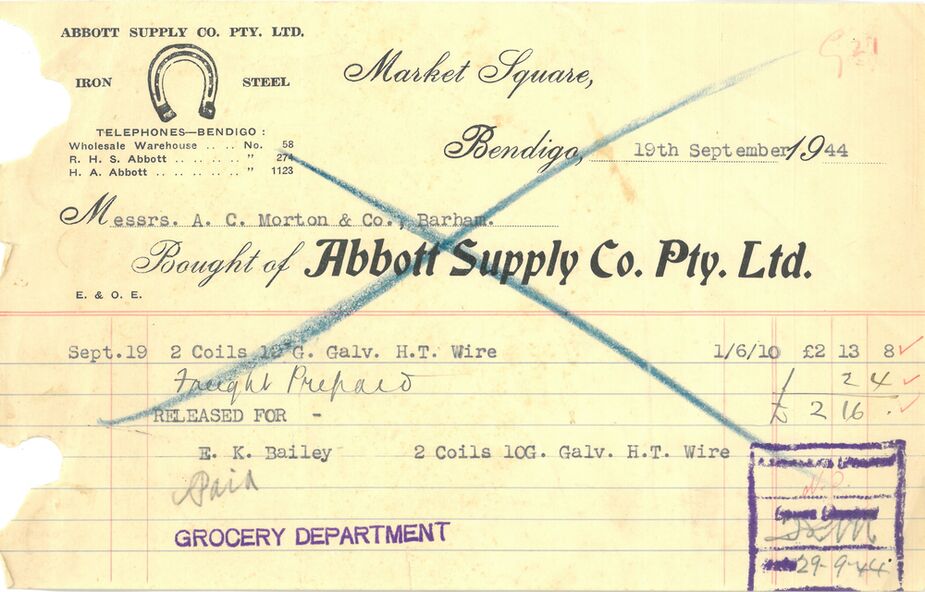 ABBOTT SUPPLY CO. PTY. LTD.
IRON STEEL
TELEPHONES—BENDIGO:
Wholesale Warehouse .. .. No. 58
R. H. S. Abbott .. .. .. .. " 274
H. A. Abbott .. .. .. .. .. " 1123
G 27
Market Square,
Bendigo, 19th September 1944
Messrs. A. C. Morton & Co., Barham.
Bought of Abbott Supply Co. Pty. Ltd.
E. & O. E.
Sept.19 2 Coils G. Galv. H.T. Wire 1/6/10 £2 13 8
Fraight Prepaid 2 4
RELEASED FOR - £ 2 16 .
E. K. Bailey 2 Coils 10G. Galv. H.T. Wire
Paid
GROCERY DEPARTMENT
29-9-44